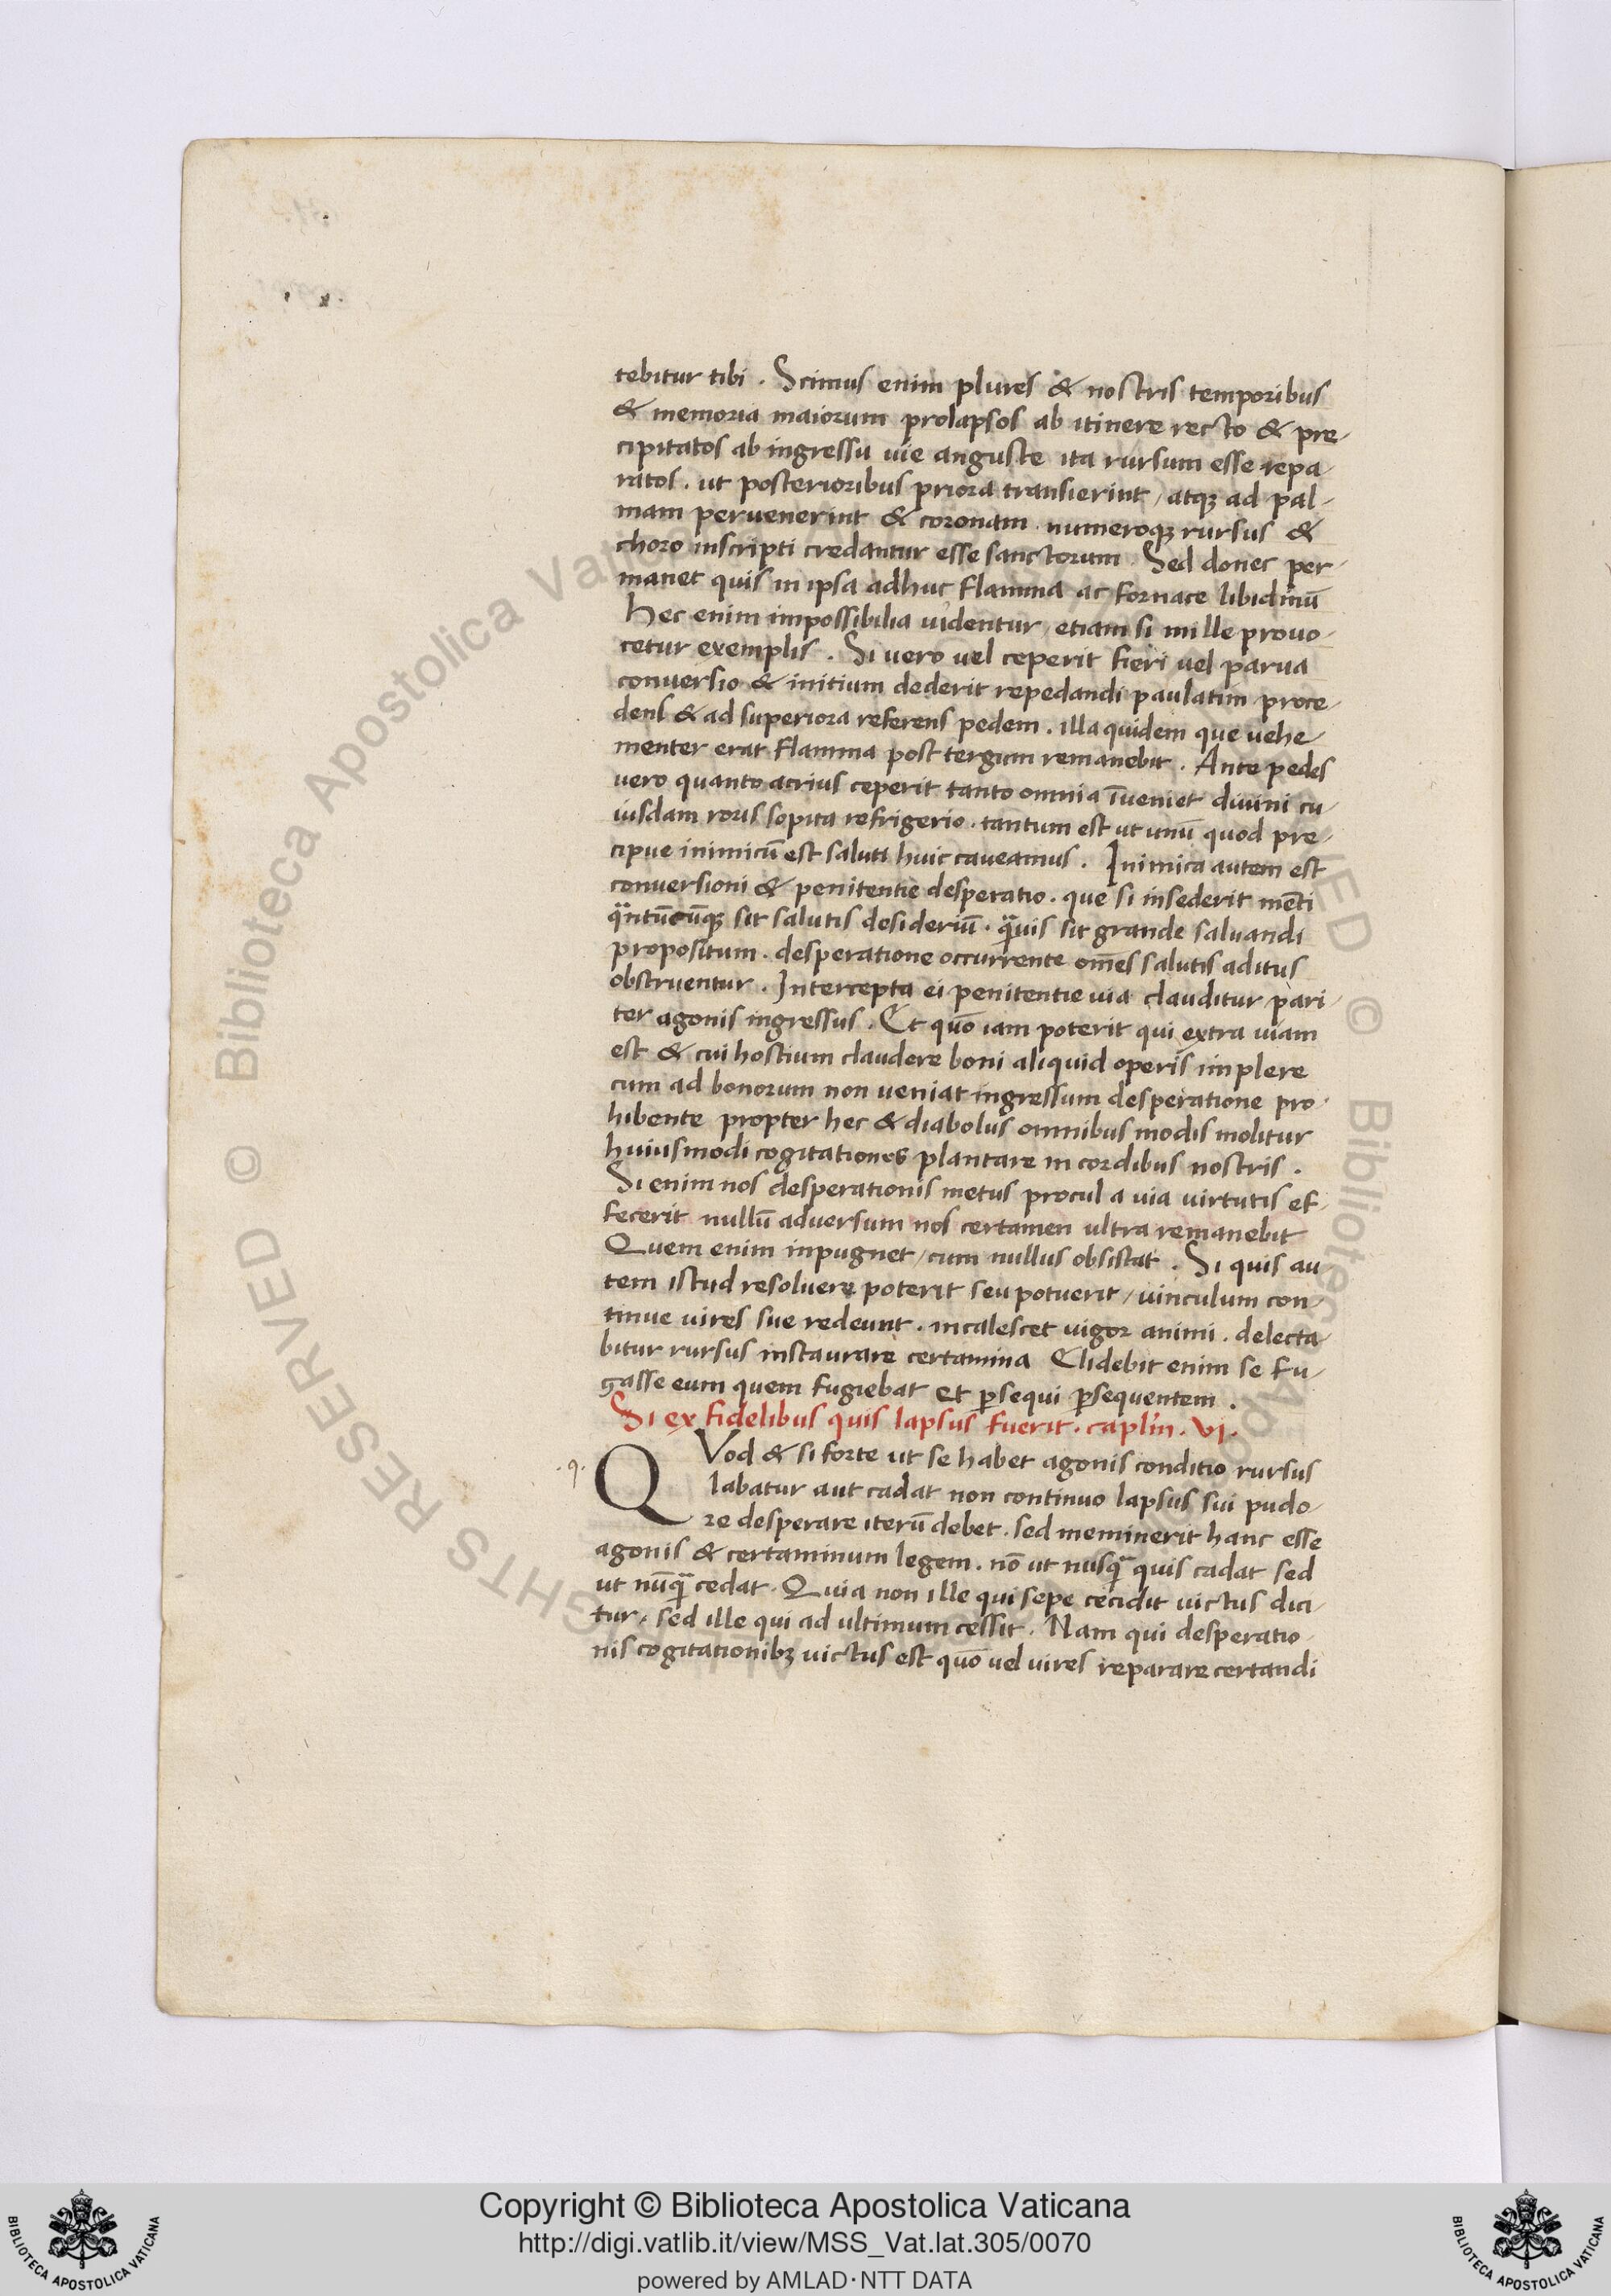 tebitur tibi . Scimus enim plures & nostris temporibus
& memoria maiorum prolapsos ab itinere recto & pre-
cipitatos ab ingressu uie anguste ita rursum esse repa-
ratos . ut posterioribus priora transierint / atqꝫ ad pal-
mam peruenerint & coronam . numeroqꝫ rursus &
choro inscripti credantur esse sanctorum . Sed donec per-
manet quis in ipsa adhuc flamma ac fornace libidinū
Hec enim impossibilia uidentur / etiam si mille prouo-
cetur exemplis . Si uero uel ceperit fieri uel parua
conuersio & initium dederit repedandi paulatim proce-
dens & ad superiora referens pedem . illa quidem que uehe-
menter erat flamma post tergum remanebit . Ante pedes
uero quanto acrius ceperit tanto omnia īueniet diuini cu-
iusdam roris sopita refrigerio . tantum est ut unū quod pre-
cipue inimicū est saluti huic caueamus . Inimica autem est
conuersioni & penitentie desperatio . que si insederit mēti
qᷓntūcūqꝫ sit salutis desideriū . qᷓuis sit grande saluandi
propositum . desperatione occurrente om̄es salutis aditus
obstruentur . Intercepta ei penitentie uia clauditur pari-
ter agonis ingressus . Et quō iam poterit qui extra uiam
est & cui hostium claudere boni aliquid operis implere
cum ad bonorum non ueniat ingressum desperatione pro-
hibente propter hec & diabolus omnibus modis molitur
huiusmodi cogitationes plantare in cordibus nostris .
Si enim nos desperationis metus procul a uia uirtutis ef-
fecerit nullū aduersum nos certamen ultra remanebit
Quem enim inpugnet / cum nullus obsistat . Si quis au
tem istud resoluere poterit seu potuerit / uinculum con-
tinue uires sue redeunt . incalescet uigor animi . delecta-
bitur rursus instaurare certamina Elidebit enim se fu-
gasse eum quem fugiebat et ꝑsequi ꝑsequentem .
Si ex fidelibus quis lapsus fuerit . caplm̄ . VI .
.9. QVod & si forte ut se habet agonis conditio rursus
labatur aut cadat non continuo lapsus sui pudo-
re desperare iterū debet . sed meminerit hanc esse
agonis & certaminum legem . nō ut nusqᷓ quis cadat sed
ut nūqᷓ cedat . Quia non ille qui sepe cecidit uictus dici-
tur / sed ille qui ad ultimum cessit . Nam qui desperatio-
nis cogitationibꝫ uictus est quō uel uires reparare certandi
ALL RIGHTS RESERVED © Biblioteca Apostolica Vaticana
Copyright © Biblioteca Apostolica Vaticana
http://digi.vatlib.it/view/MSS_Vat.lat.305/0070
powered by AMLAD·NTT DATA
BIBLIOTECA APOSTOLICA VATICANA
BIBLIOTECA APOSTOLICA VATICANA